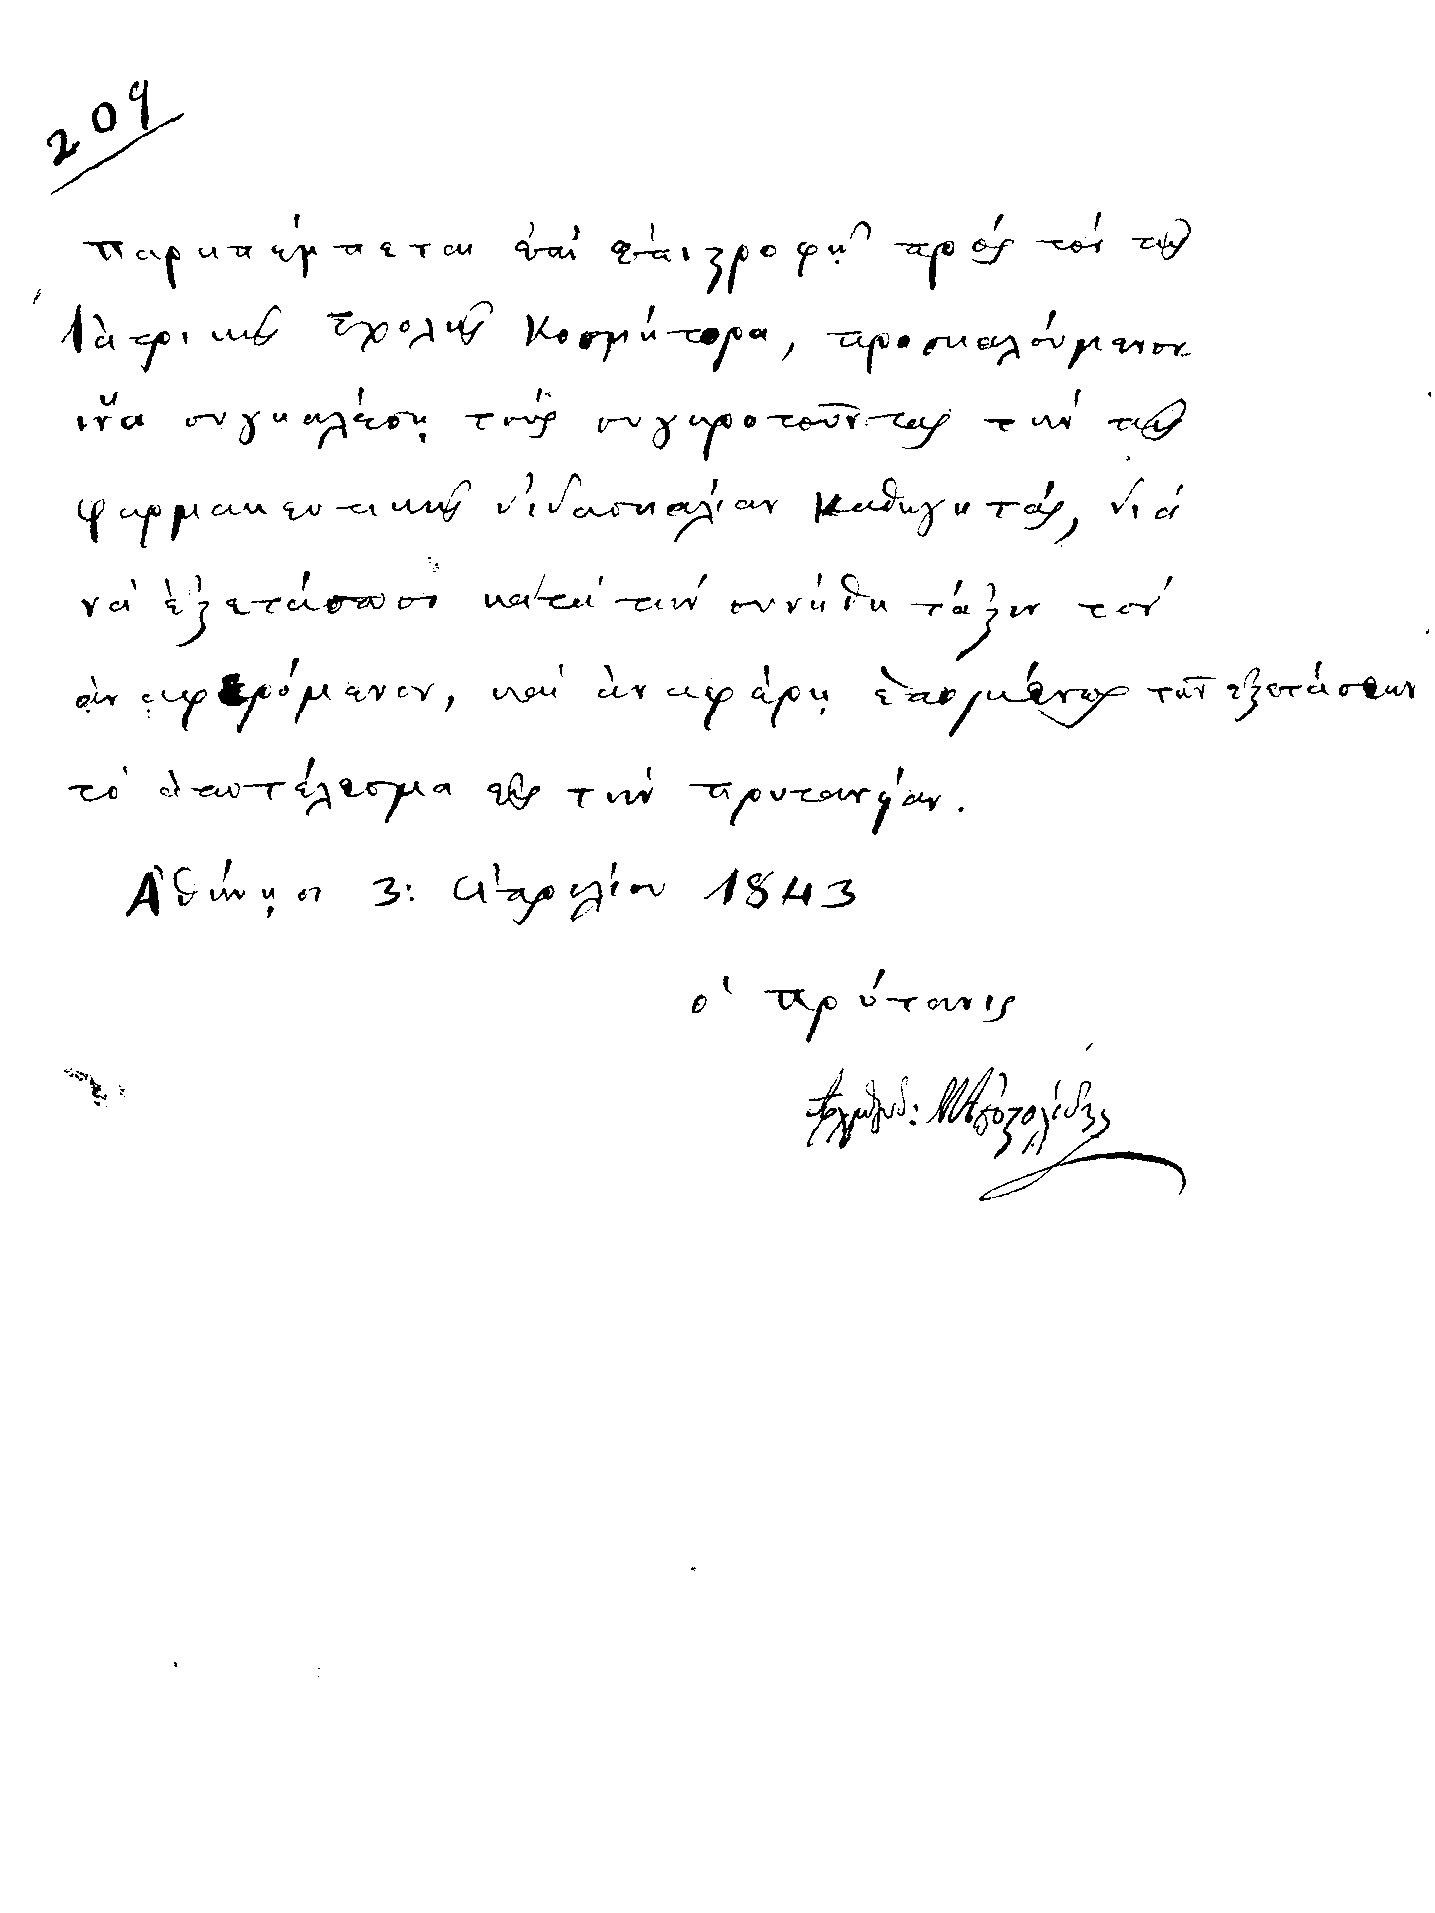 209
παραπέμπεται ἐπὶ ἐπιστροφῇ πρὸς τὸν τῆς
Ἰατρικῆς Σχολῆς Κοσμήτορα, προσκαλούμενον
ἵνα συγκαλέσῃ τοὺς συγκροτοῦντας τὴν τῆς
φαρμακευτικῆς διδασκαλίαν Καθηγητάς, διὰ
νὰ ἐξετάσωσι κατὰ τὴν συνήθη τάξιν τὸν
ἀναφερόμενον, καὶ ἀναφέρῃ ἑπομένως τῶν ἐξετάσεων
τὸ ἀποτέλεσμα εἰς τὴν πρυτανείαν.
Ἀθήνησι 3: Ἀπριλίου 1843
ὁ πρύτανις
Ἀποστολίδης